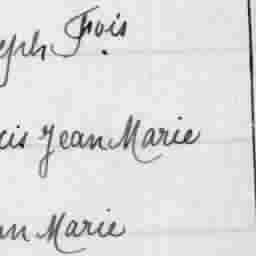 eph Fois
cis Jean Marie
an Marie